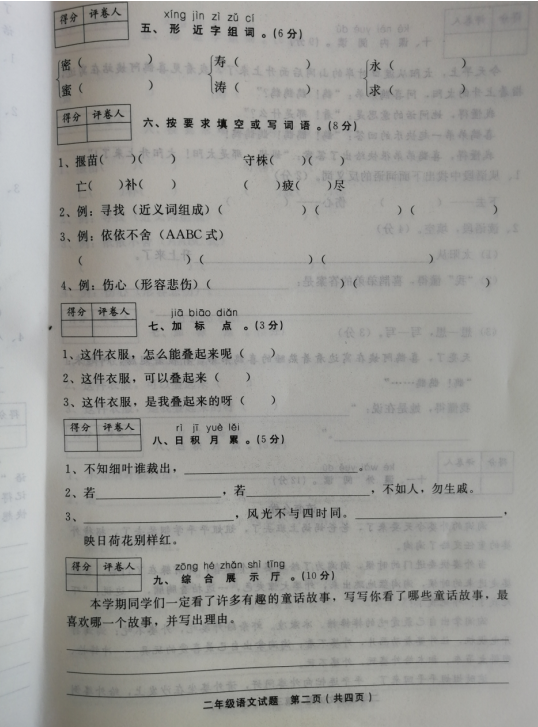 得分 评卷人
xíng jìn zì zǔ cí
五、形 近字组词。(6分)
密( ) 寿( ) 永( )
蜜( ) 涛( ) 求( )
得分 评卷人
六、按要求填空或写词语。(8分)
1、揠苗( )( ) 守株( )( )
亡( )补( ) ( )疲( )尽
2、例:寻找(近义词组成)( )( )( )
3、例:依依不舍(AABC式)
( )( )( )
4、例:伤心(形容悲伤)( )( )
得分 评卷人
jiā biāo diǎn
七、加 标 点。(3分)
1、这件衣服,怎么能叠起来呢( )
2、这件衣服,可以叠起来( )
3、这件衣服,是我叠起来的呀( )
得分 评卷人
rì jī yuè lěi
八、日积月累。(5分)
1、不知细叶谁裁出,
2、若 ,若 ,不如人,勿生戚。
3、 ,风光不与四时同。 ,
映日荷花别样红。
得分 评卷人
zōng hé zhǎn shì tīng
九、综合展示厅。(10分)
本学期同学们一定看了许多有趣的童话故事,写写你看了哪些童话故事,最
喜欢哪一个故事,并写出理由。
二年级语文试题 第二页(共四页)